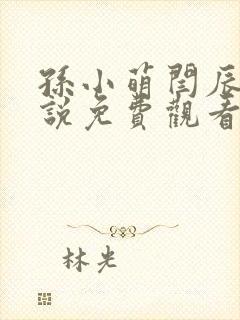 孫小萌閆辰
説免費觀看
林光